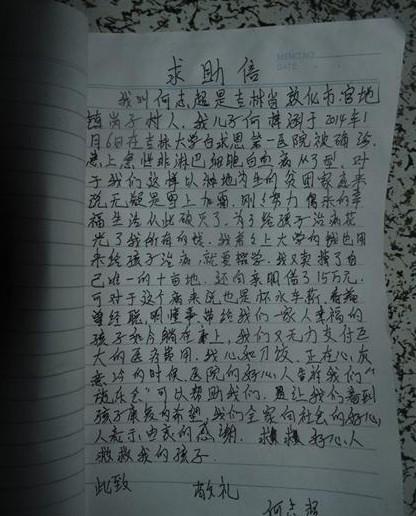 MEMO NO.
DATE
求助信
我叫何志超是吉林省敦化市官地
镇岗子村人，我儿子何 于2014年1
月6日在吉林大学白求恩第一医院被确诊
患上急性非淋巴细胞白血病M3型．对
于我们这样以种地为生的贫困家庭来
说无疑是雪上加霜，刚刚努力 来的幸
福生活从此破灭了．为了给孩子治病花
光了我所有的钱．我 上大学的钱也用
来给孩子治病，就要 学，我又卖掉了自
己唯一的十亩地．还向亲朋借了15万元．
可对于这个病来说也是杯水车薪．看着
曾经聪明懂事带给我们一家人幸福的
孩子如今躺在床上，我们又无力支付巨
大的医药费用．我心如刀绞．正在心灰
意冷的时候．医院的好心人告诉我们“
会”可以帮助我们．这让我们看到
孩子康复的希望．我们全家向社会的好心
人表示由衷的感谢． 求求好心人
救救我的孩子．
此致 敬礼
何志超